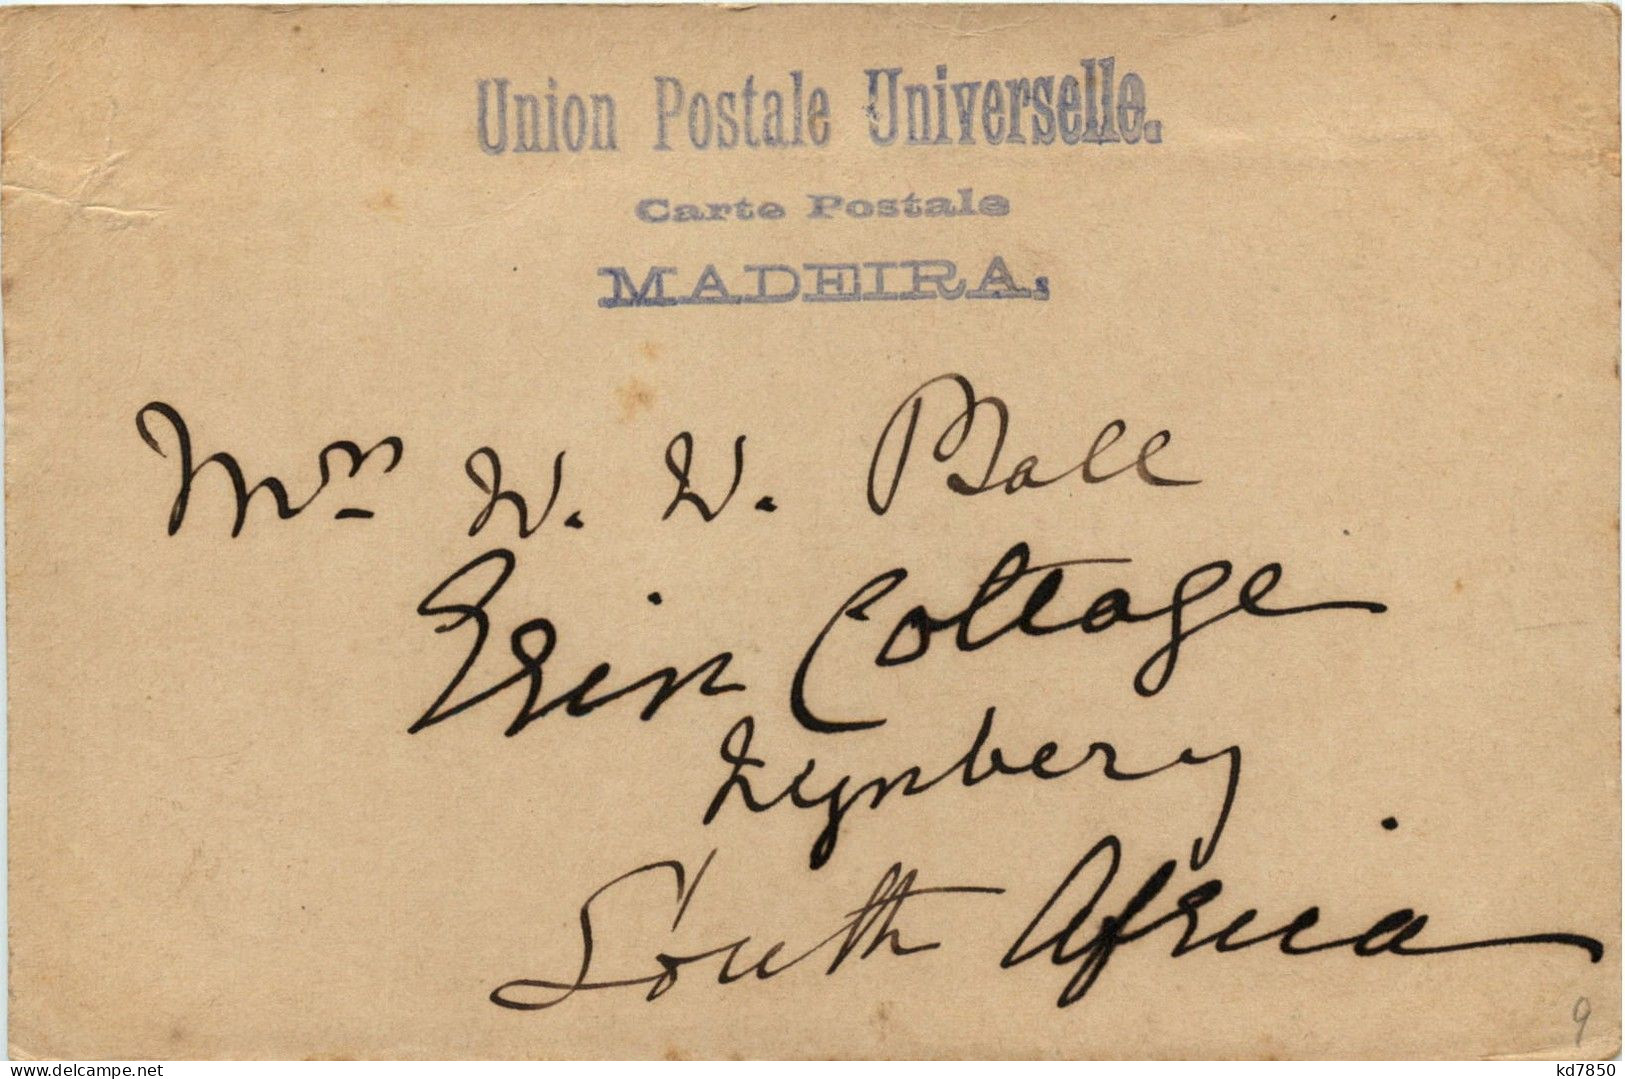 Union Postale Universelle.
Carte Postale
MADEIRA.
Mrs W. W. Ball
Erin Cottage
Wynberg
South Africa
9
kd7850